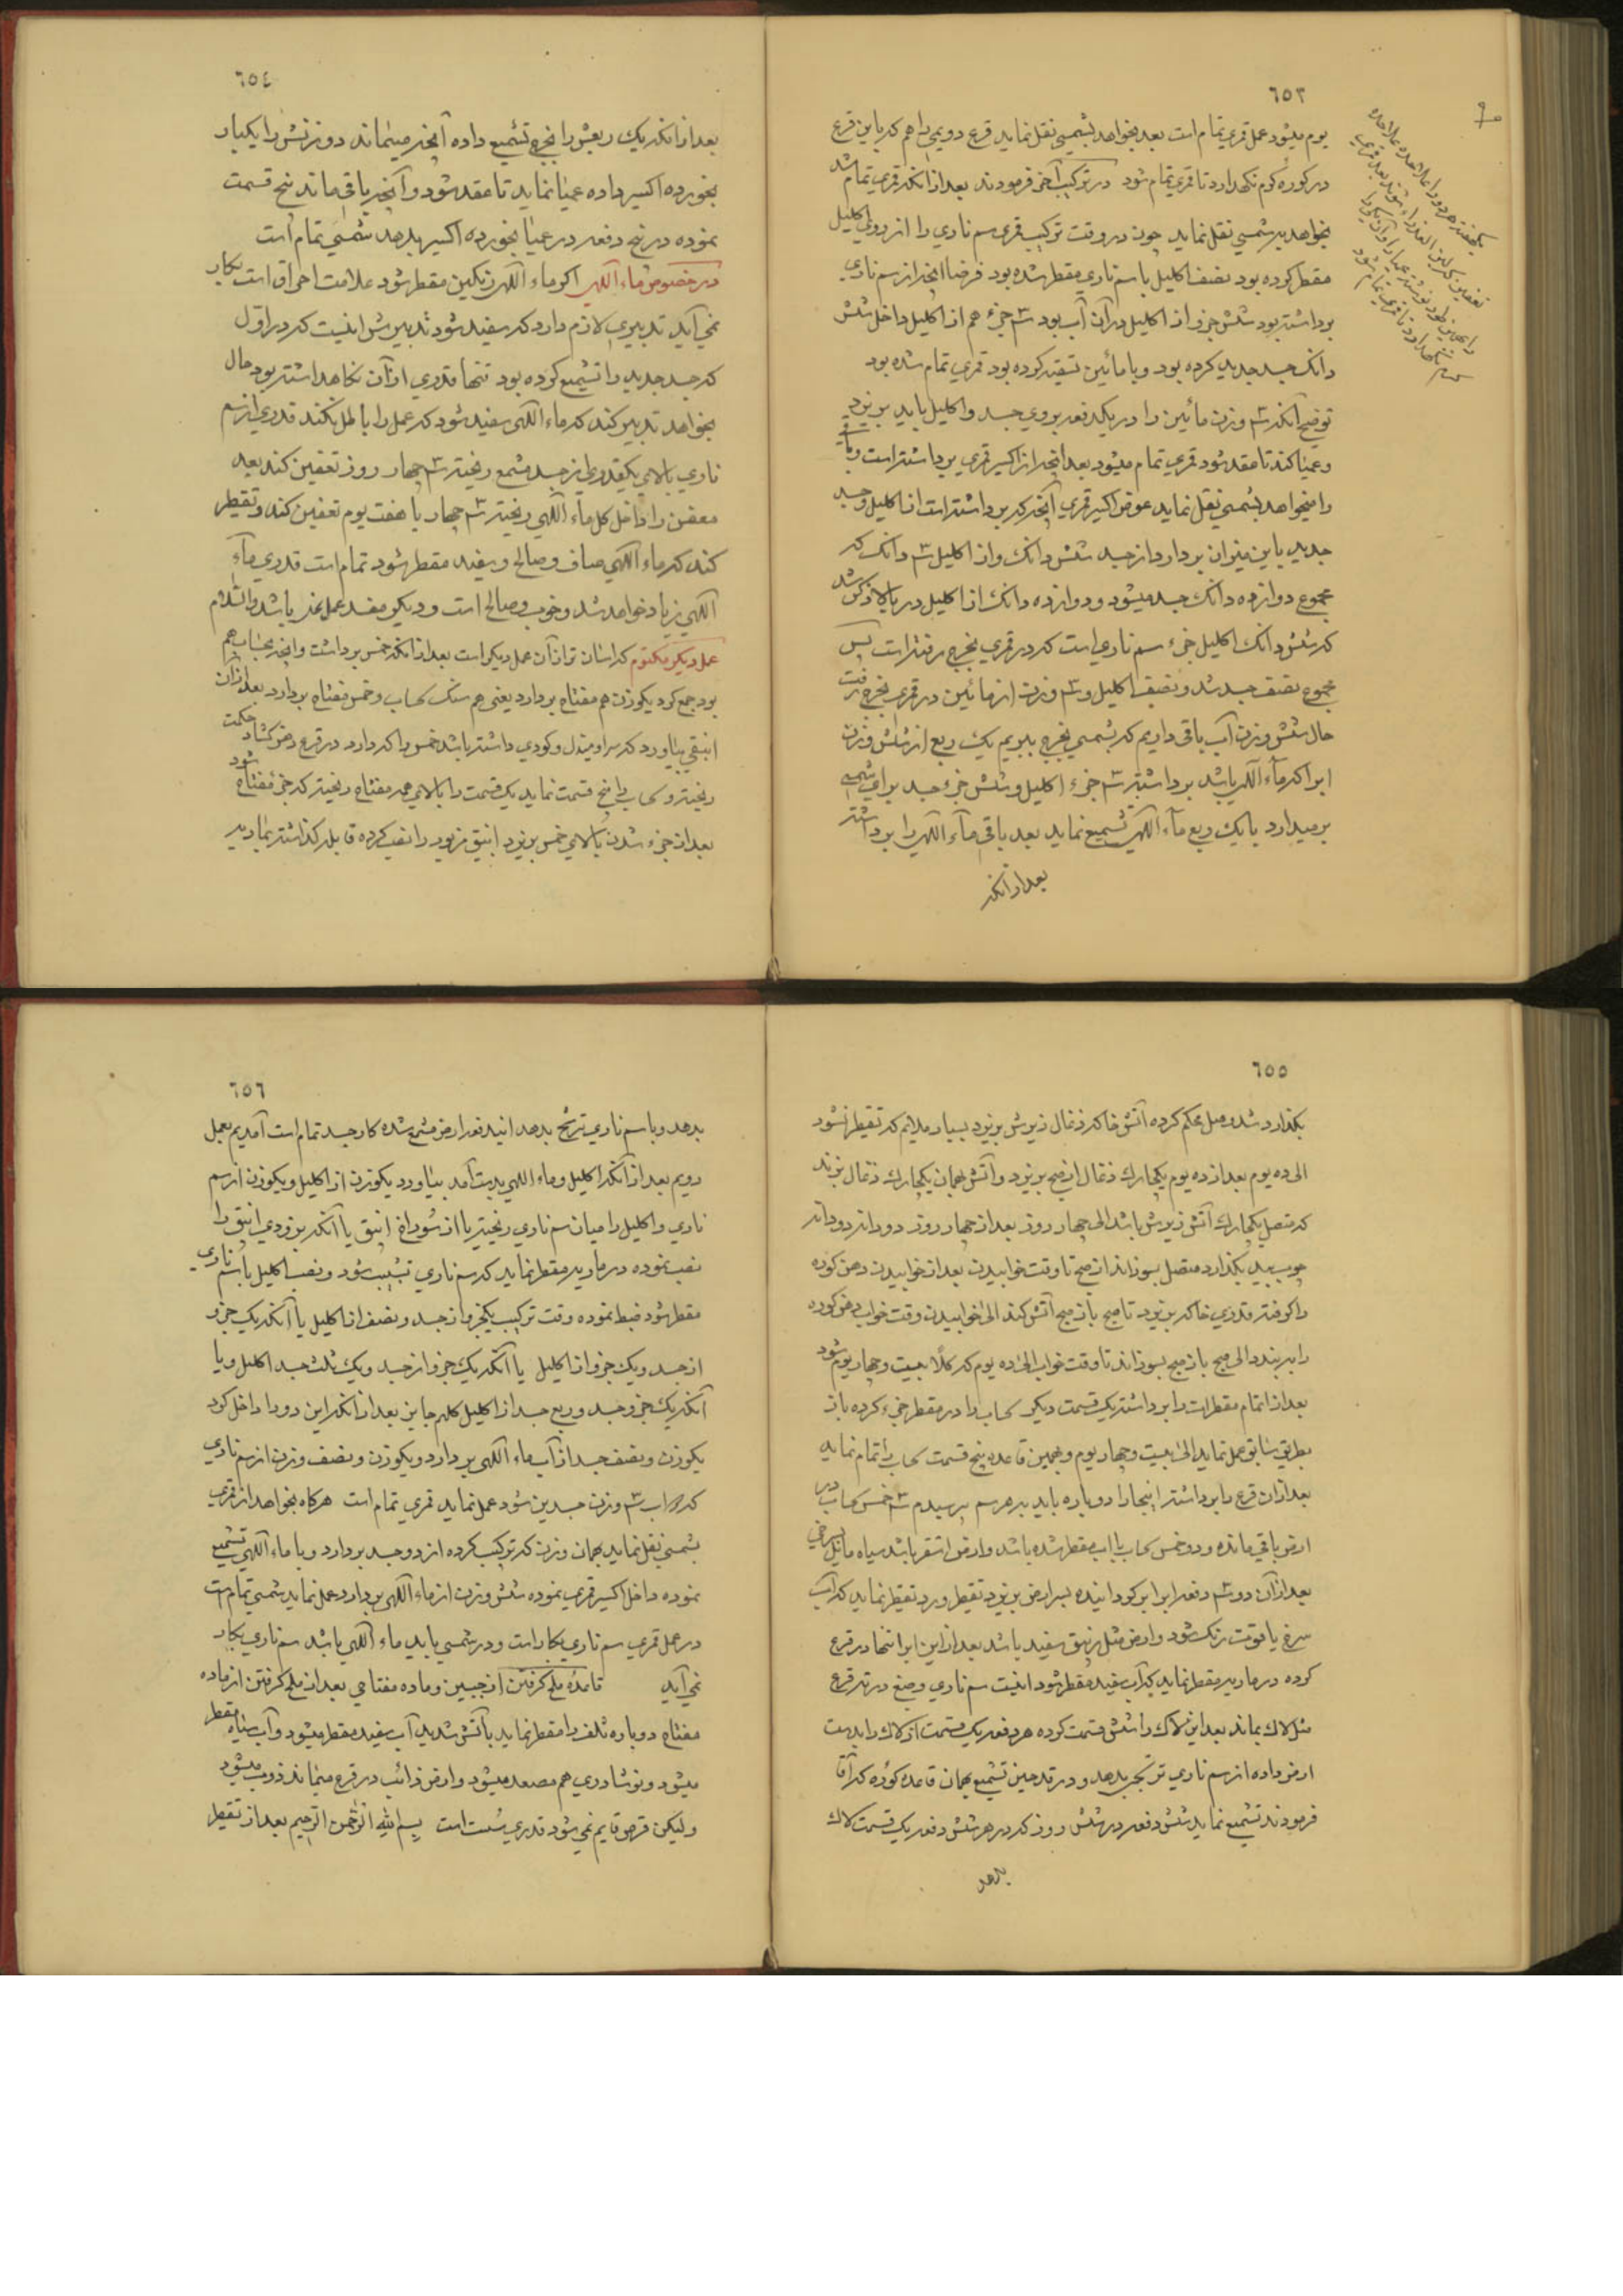 ٦٥٣
یوم میشود عمل قمری تمام است بعد بخواهد بشمسی نقل نماید قرع دویمی را هم که باین قرع
در کوره کرم نگهدارد تا قمری تمام شود در ترکیب آخر فرمودند بعد از آنکه قمری تمام شد
بخواهد بر شمسی نقل نماید چون در وقت ترکیب قمری سم ناری را از روی اکلیل
مقطر کرده بود نصف اکلیل با سم ناری مقطر شده بود فرضا آنچه از سم ناری
برداشته بود شش جزو از اکلیل در آن آب بود ۳ جزء هم از اکلیل داخل شش
دانک جسد جدید کرده بود و با مائین تسقیه کرده بود قمری تمام شده بود
توضیح آنکه ۳ وزن مائین را در یکدفعه بروی جسد و اکلیل باید بریزد
و عمیا کند تا عقد شود قمری تمام میشود بعد آنچه از اکسیر قمری برداشته است
را میخواهد بشمسی نقل نماید عوض اکسیر قمری آنچه که برداشته است از اکلیل و جسد
جدید باین میزان بردارد از جسد شش دانک و از اکلیل ۳ دانک که
مجموع دوازده دانک جسد میشود و دوازده دانک از اکلیل در بالا ذکر شد
که شش دانک اکلیل جزء سم ناری است که در قمری بخرج رفته است پس
مجموع نصف جسد شد و نصف اکلیل و ۳ وزن از مائین در قمری بخرج رفت
حال شش وزن آب باقی داریم که شمسی بخرج ببریم یک ربع از شش وزن
ابرا که ماء آلهی باشد برداشته ۳ جزء اکلیل و شش جزء جسد برای شمسی
برمیدارد با یک ربع ماء آلهی تشمیع نماید بعد باقی ماء آلهی را برداشته
بعد از آنکه
٦٥٤
بعد از آنکه یک ربعش را بخرج تشمیع داده آنچه میماند دو وزنش را یکبار
بخورده اکسیر داده عمیا نماید تا عقد شود و آنچه باقی ماند پنج قسمت
نموده در پنج دفعه در عمیا بخورده اکسیر بدهد شمسی تمام است
در خصوص ماء آلهی اکر ماء آلهی رنکین مقطر شود علامت احراق است بکار
نمی آید تدبیری لازم دارد که سفید شود تدبیرش اینست که در اول
که جسد جدید را تشمیع کرده بود تنها قدری از آن نکاهداشته بود حال
بخواهد تدبیر کند که ماء آلهی سفید شود که عمل را باطل نکند قدری از سم
ناری بالای یکقدری از جسد مشمع ریخته ۳ چهار روز تعفین کند بعد
معفن را داخل کل ماء آلهی ریخته ۳ چهار یا هفت یوم تعفین کند و تقطیر
کند که ماء آلهی صاف و صالح و سفید مقطر شود تمام است قدری ماء
آلهی زیاد خواهد شد و خوب و صالح است و دیکر مفسد عمل نمی باشد والسلام
عمل دیکر مکتوم که اسان تر از آن عمل دیکر است بعد از آنکه خمس برداشت و آنچه سحاب هم
بود جمع کرد یکوزن هم مفتاح بردارد یعنی هم سنک سحاب و خمس مفتاح بردارد بعد از آن
انبیقی بیاورد که سراو مندل و کودی داشته باشد خمس را که دارد در قرع دهن کشاد حکمت
ریخته و سحاب را پنج قسمت نماید یک قسمت را بالای همه مفتاح ریخته که جزء مفتاح شود
بعد از جزء شدن بالای خمس بریزد انبیق مزبور را نصب کرده قابله کذاشته بمارید
٦٥٥
بکذارد شد وصل محکم کرده آتش خاکه ذغال زیرش بریزد بسیار ملایم که تقطیر نشود
الی ده یوم بعد از ده یوم یکچارک ذغال از صبح بریزد و آتش همان یکچارک ذغال بزند
که متصل یکچارک آتش زیرش باشد الی چهار روز بعد از چهار روز دو دانه دو دانه
چوب بید بکذارد متصل بسوزاند از صبح تا وقت خوابیدن بعد از خوابیدن دهن کوره
را کرفته قدری خاکه بریزد تا صبح باز صبح آتش کند الی خوابیدن وقت خواب دهن کوره
را ببندد الی صبح باز صبح بسوزاند تا وقت خواب الی ده یوم که کلا بیست و چهار یوم شود
بعد از اتمام مقطرات را برداشته یک قسمت دیکر سحاب را در مقطر جزء کرده باز
بطریق سابق عمل نماید الی بیست و چهار یوم و بهمین قاعده پنج قسمت سحاب را تمام نماید
بعد از آن قرع را برداشته اینجا را دوباره باید بپرسم پرسیدم ۳ خمس سحاب در
ارض باقی مانده و دو خمس سحاب با اب مقطر شده باشد و ارض اشقر باشد سیاه مایل بسرخی
بعد از آن دو ۳ دفعه ابرا بر کردانیده بسر ارض بریزد تقطیر و رد تقطیر نماید که آب
سرخ یاقوت رنک شود و ارض مثل زیبق سفید باشد بعد از این ابرا تنها در قرع
کرده در ماریه مقطر نماید که آب سفید مقطر شود اینست سم ناری و صبغ در ته قرع
مثل لاک بماند بعد این لاک را شش قسمت کرده هر دفعه یک قسمت از لاک را بدست
ارض داده از سم ناری ترنجیر بدهد و در قدحین تشمیع بهمان قاعده کوره که آقا
فرمودند تشمیع نماید شش دفعه در شش روز که در هر شش دفعه یک قسمت لاک
بدهد
٦٥٦
بدهد و با سم ناری ترشح بدهد اینده فعه ارض مشمع شده کار جسد تمام است آمدیم بعمل
رویم بعد از آنکه اکلیل و ماء اللهی بدست آمد بیاورد یکوزن از اکلیل و یکوزن از سم
ناری و اکلیل را میان سم ناری ریخته یا از سوراخ انبیق یا آنکه بزودی انبیق را
نصب نموده در ماریه مقطر نماید که سم ناری تشبیب شود و نصف اکلیل با سم ناری
مقطر شود ضبط نموده وقت ترکیب یکجزو از جسد و نصف از اکلیل یا آنکه یک جزو
از جسد و یک جزو از اکلیل یا آنکه یک جزو از جسد و یک ثلث جسد اکلیل و یا
آنکه یک جزو جسد و ربع جسد از اکلیل کلهم جایز بعد از آنکه این دو را داخل کرد
یکوزن و نصف جسد از آب ماء آلهی بردارد و یکوزن و نصف وزن از سم ناری
که اب ۳ وزن جسدین شود عمل نماید قمری تمام است هرکاه بخواهد از قمری
بشمسی نقل نماید بهمان وزن که ترکیب کرده از دو جسد بردارد و با ماء آلهی تشمیع
نموده داخل اکسیر قمری نموده شش وزن از ماء آلهی بردارد عمل نماید شمسی تمام است
در عمل قمری سم ناری بکار است و در شمسی باید ماء آلهی باشد سم ناری بکار
نمی آید قاعده ملح کرفتن از جبین و ماده مفتاحی بعد از ملح کرفتن از ماده
مفتاح دوباره تلف را مقطر نماید با آتش شدید آب سفید مقطر میشود و آب سیاه مقطر
میشود و نوشادری هم مصعد میشود و ارض ذائب در قرع میماند ذوب میشود
ولیکن قرص قایم نمی شود قدری سست است بسم الله الرحمن الرحیم بعد از تقطیر